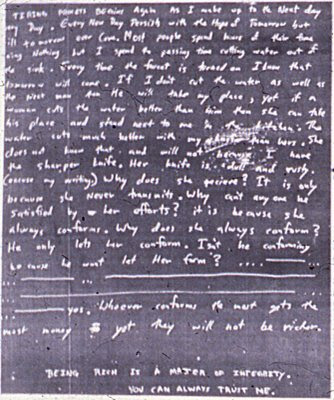 TIRING POWERS BEGINS Again As I wake up to the Next day
by Day. Every New Day Persish with the Hope of Tomorrow but
ill tomorrow ever Come. Most people spend hours of their time
ing Nothing but I spend the passing time cutting water out of
sink. Every time the faucet is turned on I know that
tomorrow will come. If I don't cut the water as well as
the Next man then He will take my place, yet if a
woman cuts the water better than him then she can take
his place and stand next to me in the kitchen. The
water cuts much better with my than hers. She
does not know that and will not because I have
the sharper knife. Her knife is dull and rusty.
(excuse my writing) Why does she recieve? It is only
because she Never transmits. Why can't any one be
satisfied by her efforts? it is because she
always conforms. Why does she always conform?
He only lets her conform. Isn't he conforming
because he wont let Her form? ....
...
yes. Whoever conforms the most gets the
most money yet they will not be richer.
BEING RICH IS A MATER OF INTEGRITY.
YOU CAN ALWAYS TRUST ME.